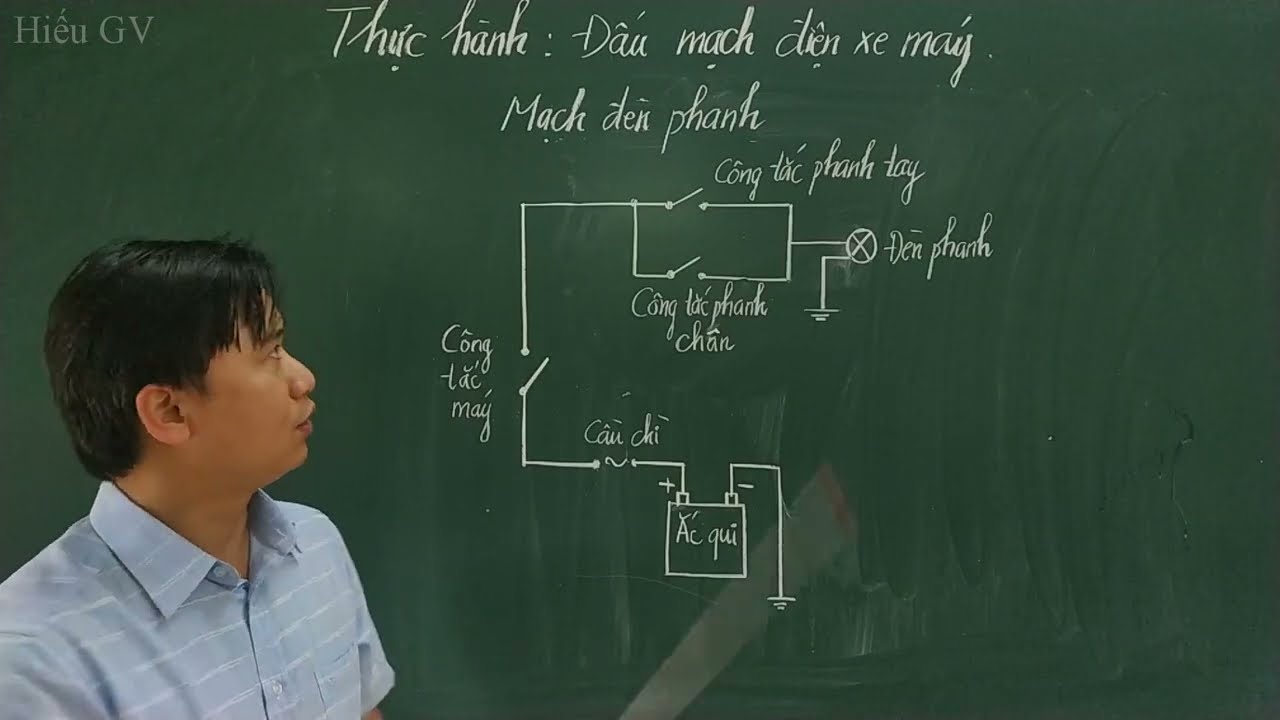 Hiếu GV
Thực hành: Đấu mạch điện xe máy.
Mạch đèn phanh
Công tắc phanh tay
Đèn phanh
Công tắc phanh
chân
Công
tắc
máy
Cầu chì
+ -
Ắc qui